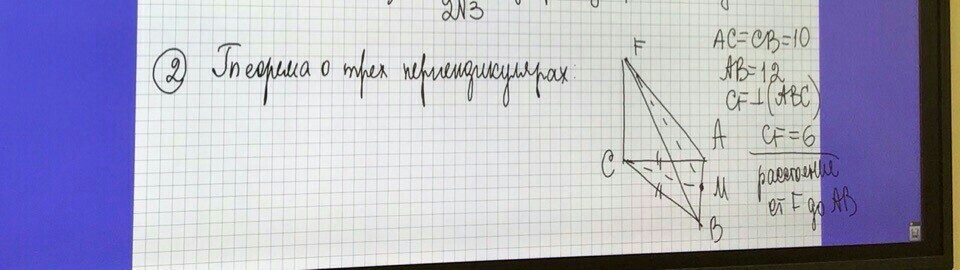 2√3
② Теорема о трех перпендикулярах:
F
C
A
M
B
AC=CB=10
AB=12
CF⊥(ABC)
CF=6
расстояние
от F до AB